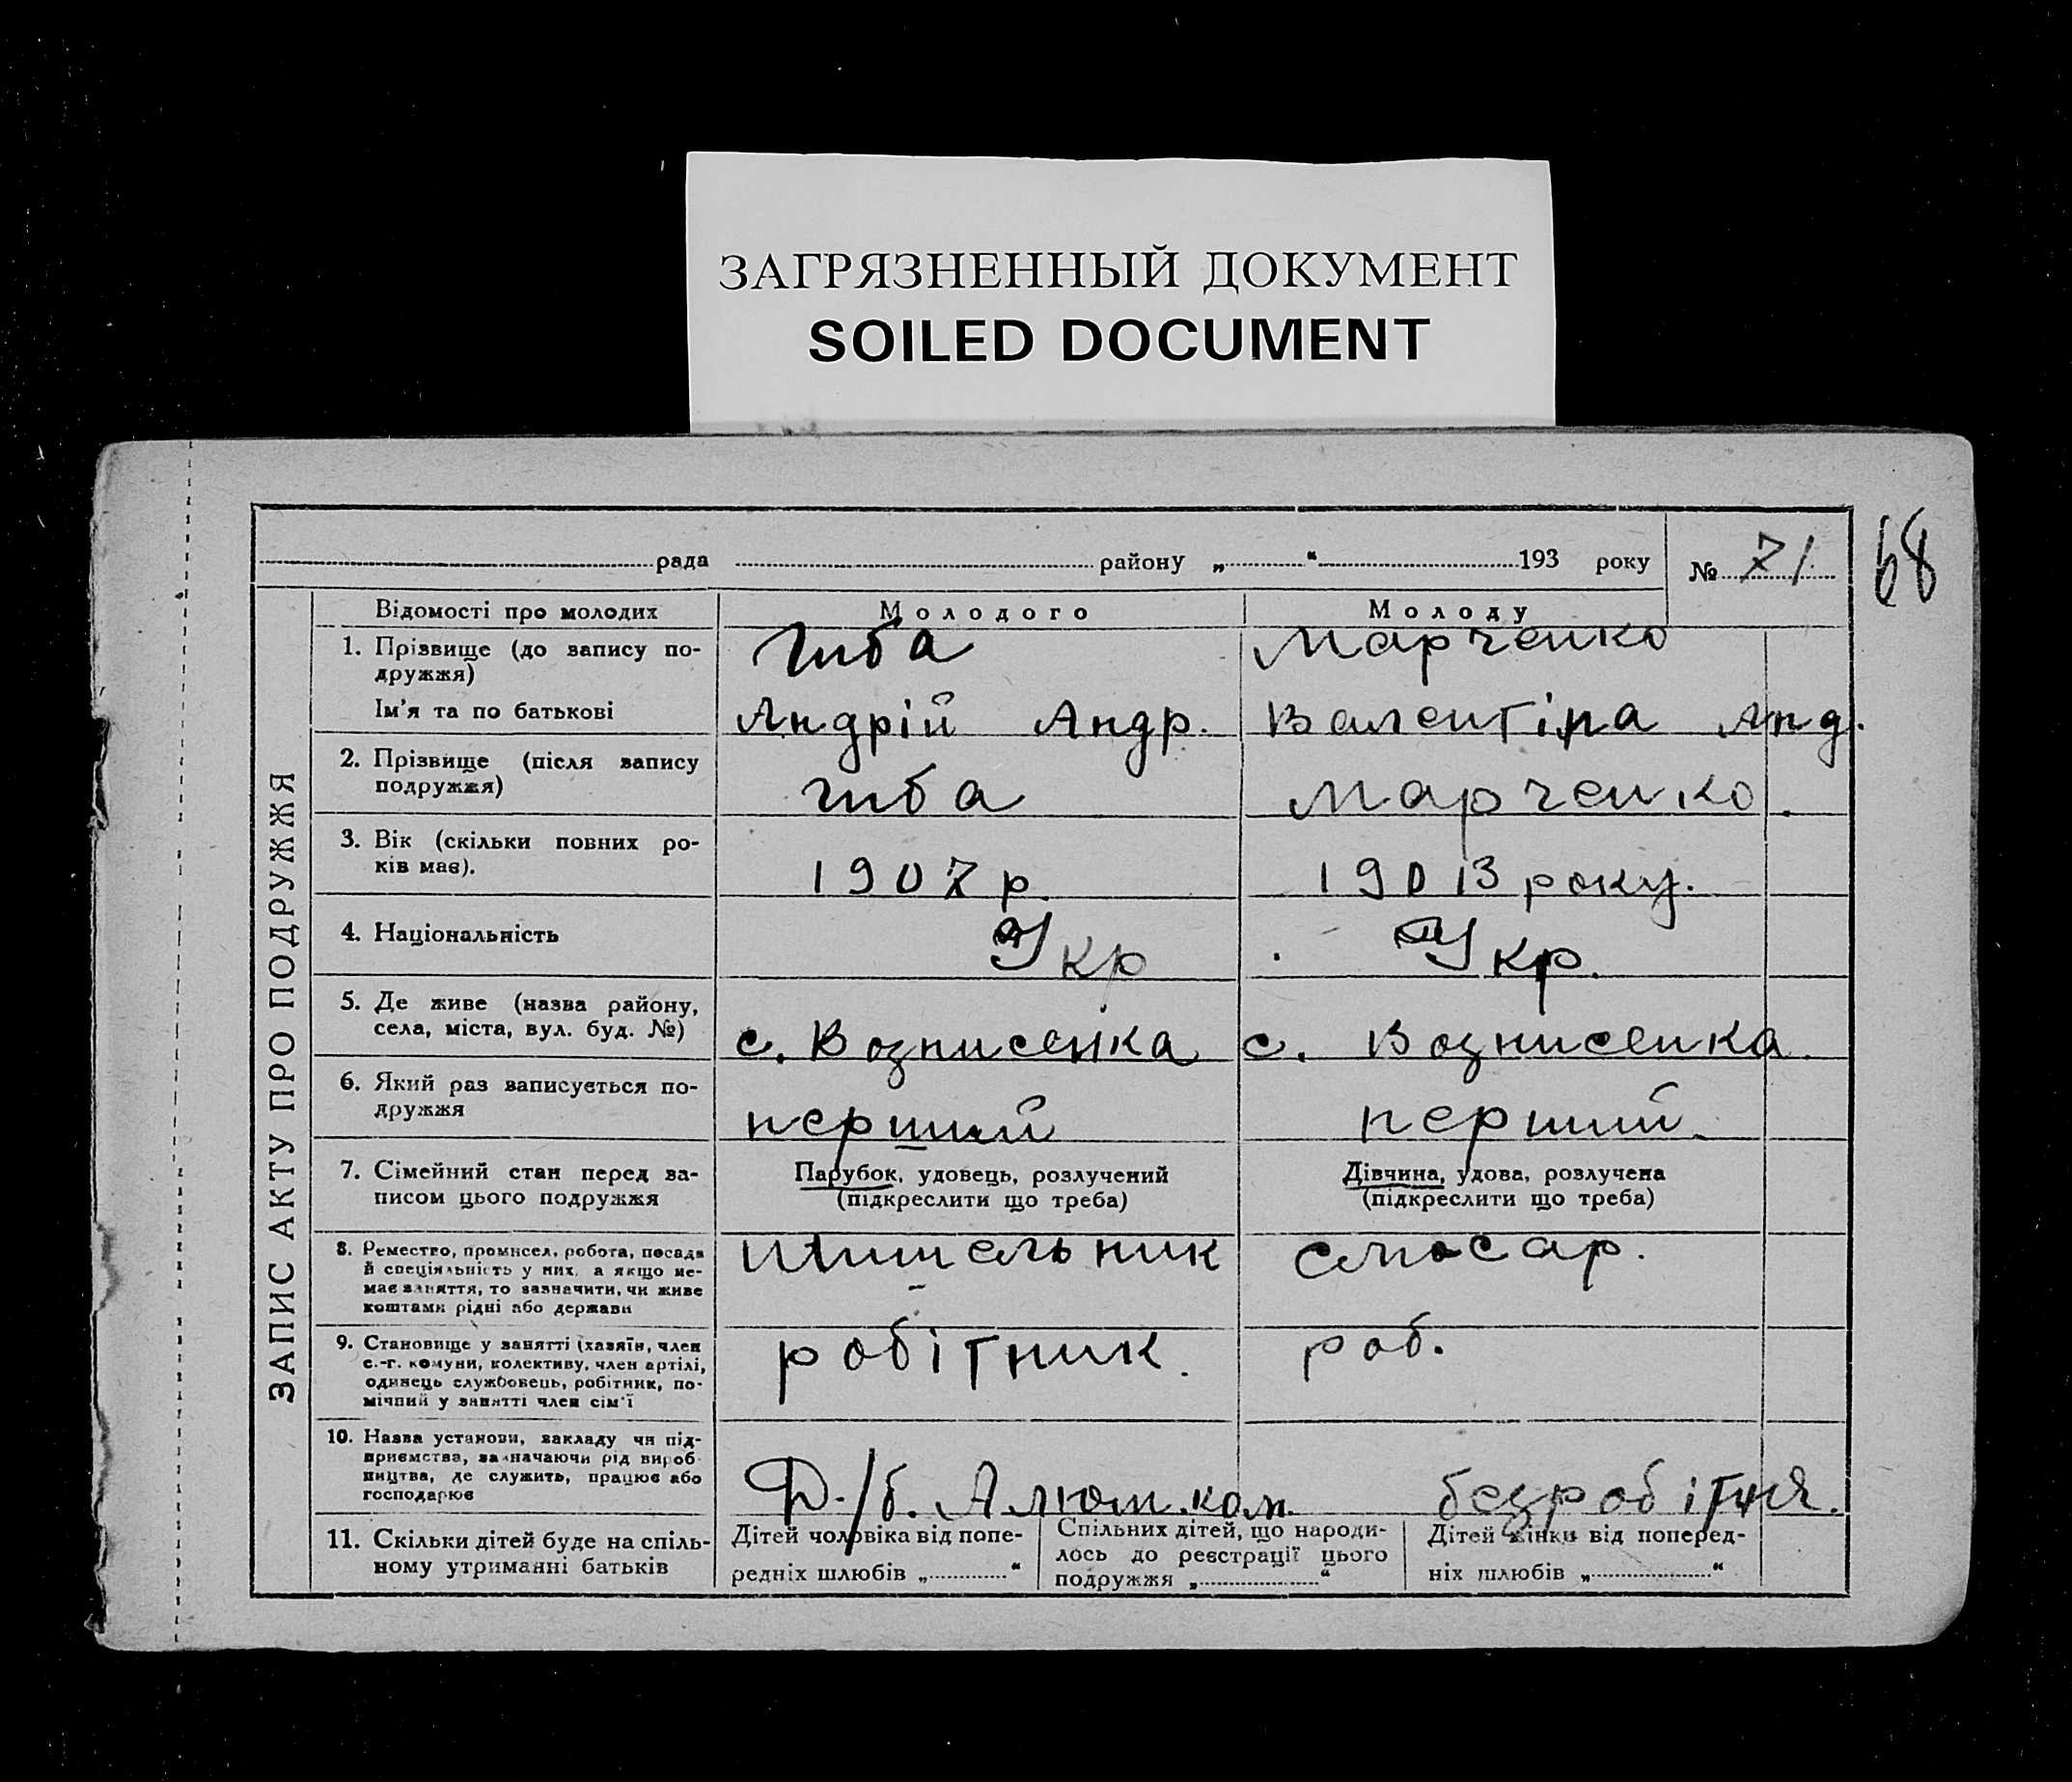 ЗАГРЯЗНЕННЫЙ ДОКУМЕНТ
SOILED DOCUMENT
68
рада району „ “ 193 року № 71
ЗАПИС АКТУ ПРО ПОДРУЖЖЯ
Відомості про молодих Молодого Молоду
1. Прізвище (до запису по-
дружжя)
Гиба Марченко
Ім'я та по батькові Андрій Андр. Валентіна Анд.
2. Прізвище (після запису
подружжя)
Гиба Марченко.
3. Вік (скільки повних ро-
ків має).
1907 р. року.
4. Національність Укр Укр.
5. Де живе (назва району,
села, міста, вул. буд. №)
с. Вознисенка с. Вознисенка.
6. Який раз записується по-
дружжя
перший перший.
7. Сімейний стан перед за-
писом цього подружжя
Парубок, удовець, розлучений
(підкреслити що треба)
Дівчина, удова, розлучена
(підкреслити що треба)
8. Ремество, промисел, робота, посада
й спеціяльність у них, а якщо не-
має заняття, то зазначити, чи живе
коштами рідні або держави
слюсар.
9. Становище у занятті (хазяїн, член
с.-г. комуни, колективу, член артілі,
одинець службовець, робітник, по-
мічний у занятті член сім'ї
робітник. роб.
10. Назва установи, закладу чи під-
приємства, зазначаючи рід вироб-
ництва, де служить, працює або
господарює
Д./б. Алюм.ком. безробітня.
11. Скільки дітей буде на спіль-
ному утриманні батьків
Дітей чоловіка від попе-
редніх шлюбів „ “
Спільних дітей, що народи-
лось до реєстрації цього
подружжя „ “
Дітей жінки від поперед-
ніх шлюбів „ “